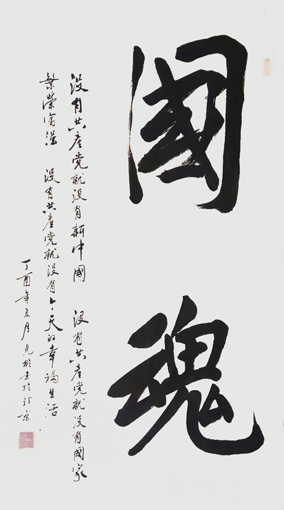 國魂
没有共产党就没有新中國 没有共产党就没有国家
繁荣富强 没有共产党就没有今天的幸福生活
丁酉年